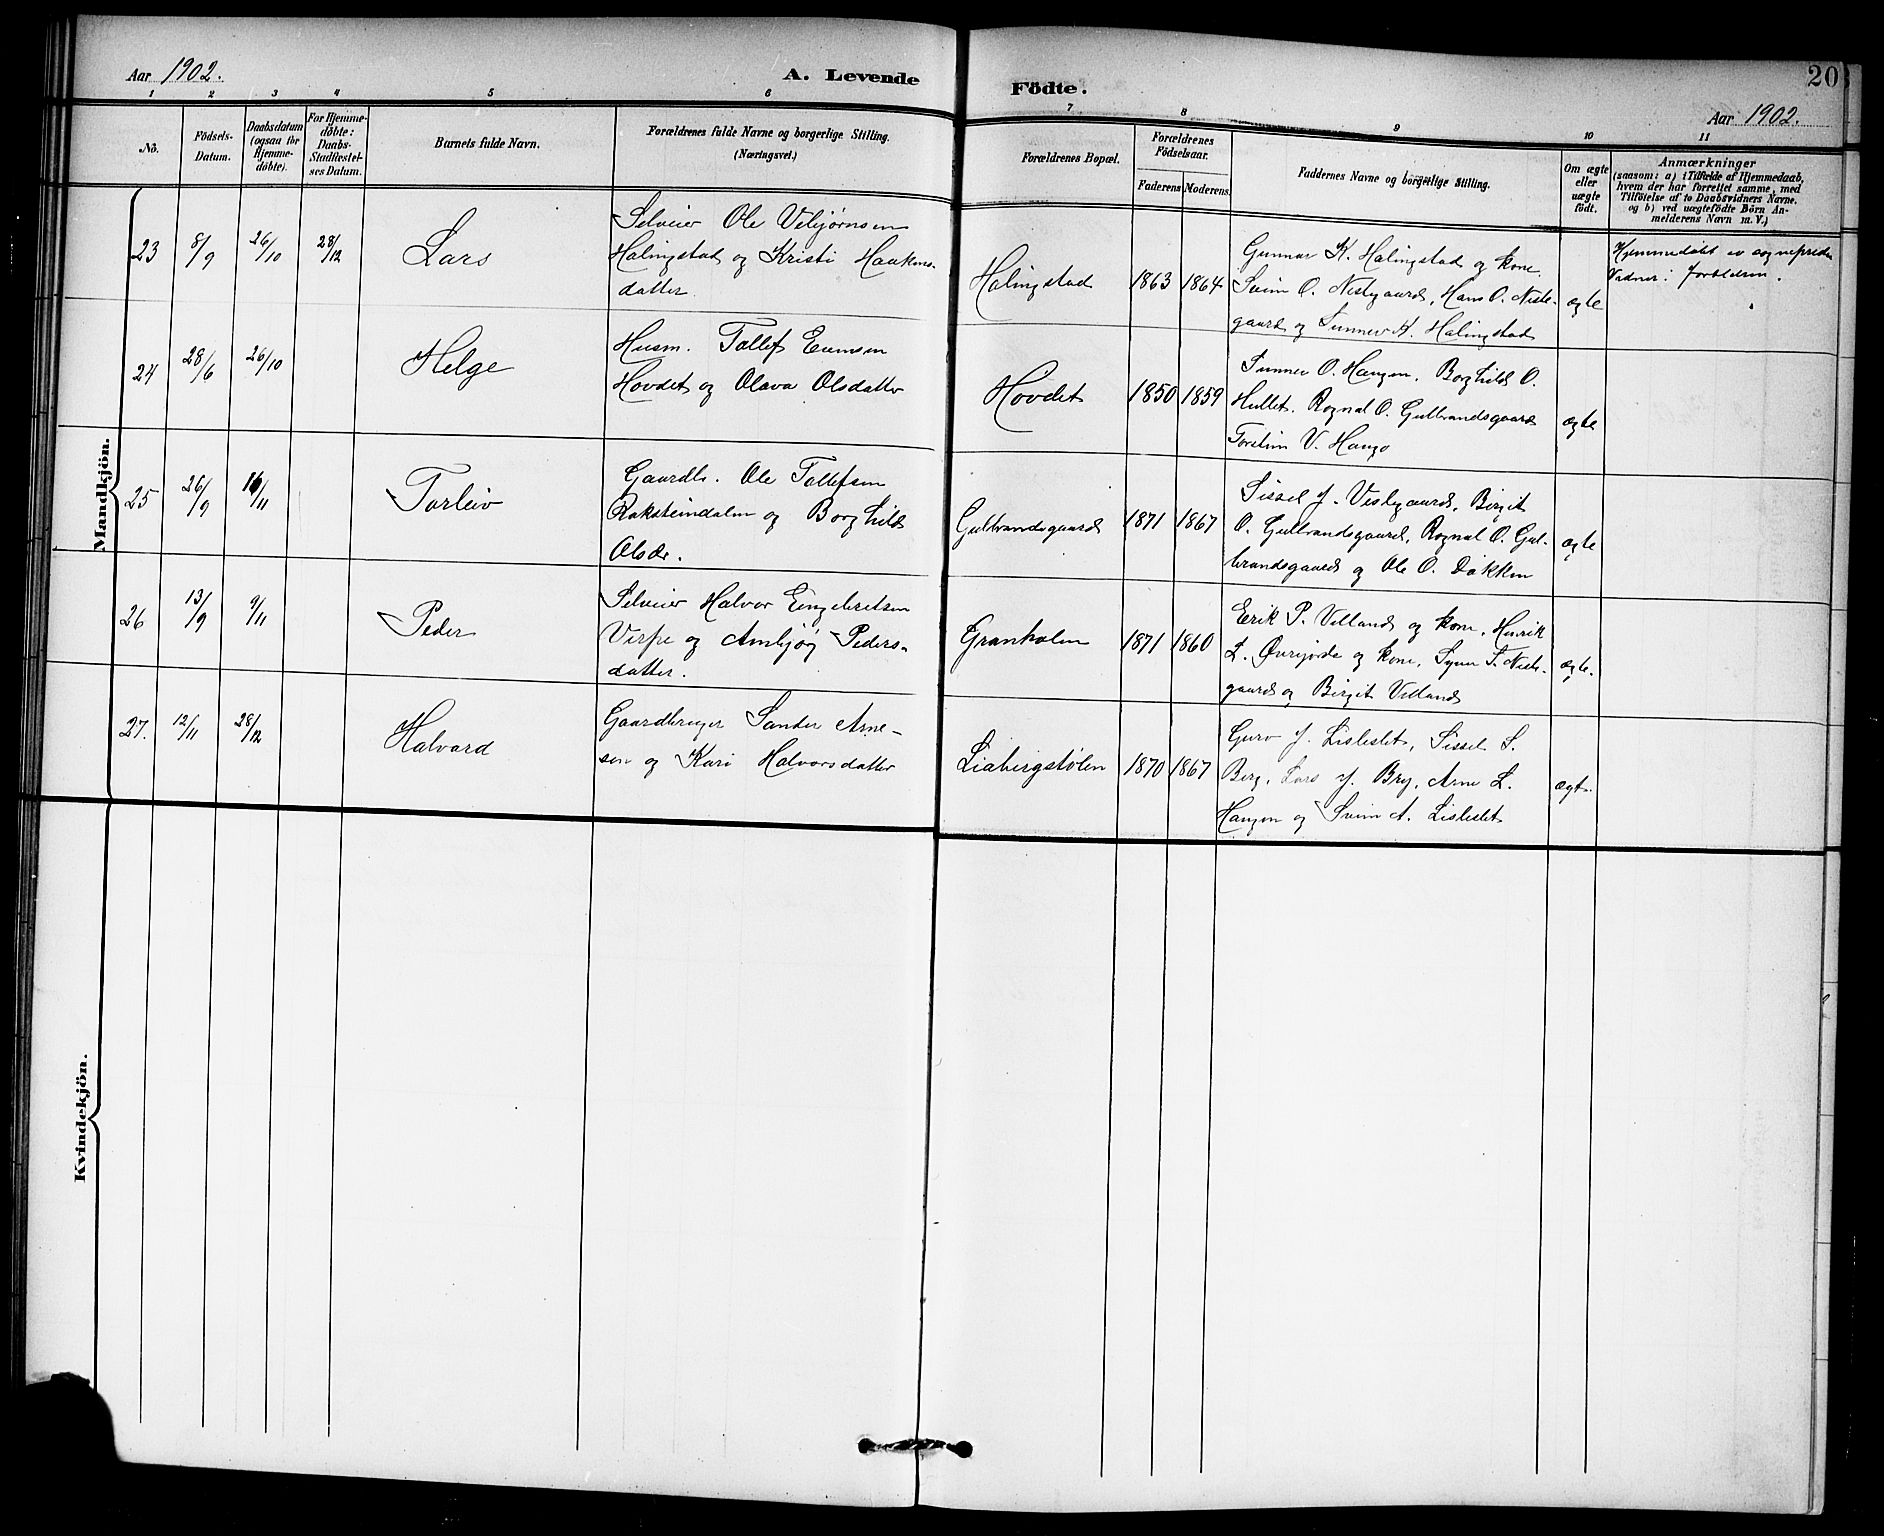 Aar 1902.
A. Levende
1 2 3 4 5 6
Nô.
Födsels-
Datum.
Daabsdatum
(ogsaa for
Hjemme-
döbte).
For Hjemme-
döbte:
Daabs-
Stadfæstel-
ses Datum.
Barnets fulde Navn.
Forældrenes fulde Navne og borgerlige Stilling.
(Næringsvei.)
Mandkjön.
23 8/9 26/10 28/12 Lars
Selveier Ole Vebjørnsen
Halingstad og Kristi Haakens-
datter
24 28/6 26/10 Helge
Husm. Tollef
Hovdet og Olava Olsdatter
25 26/9 16/11 Torleiv
Gaardb. Ole Tollefsen
Roksteindalen og Borghild
Olsdr.
26 13/9 9/11 Peder
Selveier Halvor Engebretsen
Virpe og Ambjørg Peders-
datter.
27. 12/11 28/12 Halvard
Gaardbruger Sander Arne-
sen og Kari Halvorsdatter
Kvindekjön.
Födte.
20
Aar 1902.
7 8 9 10 11
Forældrenes Bopæl.
Forældrenes
Födselsaar.
Faderens Moderens.
Faddernes Navne og borgerlige Stilling.
Om ægte
eller
uægte
födt.
Anmærkninger
(saasom: a) i Tilfælde af Hjemmedaab,
hvem der har forrettet samme, med
Tilföielse af to Daabsvidners Navne.
og b) ved uægtefödte Börn An-
melderens Navn m. V.)
Halingstad 1863 1864
Gunnar K. Halingstad og kone.
Svein O. Nesbygaard, Hans O. Niste-
gaard og Sunnev K. Halingstad
ægte
Hjemmedøbt av sogneprsten
Vidner: forældren.
Hovdet 1850 1859
Sunnev O. Haugen, Borghild O.
Hullet. Rognal O. Gulbrandsgaard
Torstein V. Haugo
ægte
Gulbrandsgaard 1871 1867
Sissel J. Vestegaard, Birgit
O. Gulbrandsgaard, Rognal O. Gul-
brandsgaard og Ole O. Dokken
ægte
Granholen 1871 1860
Erik P. Villand og kone, Henrik
L. Øvrejorde og kone, S. Niste-
gaard og Birgit Villand
ægte.
Liabergstølen 1870 1867
Guro J. Lislelet, Sissel S.
Berg, Lars J. Berg, Arne L.
Haugen og Svein A. Lislelet
ægte.